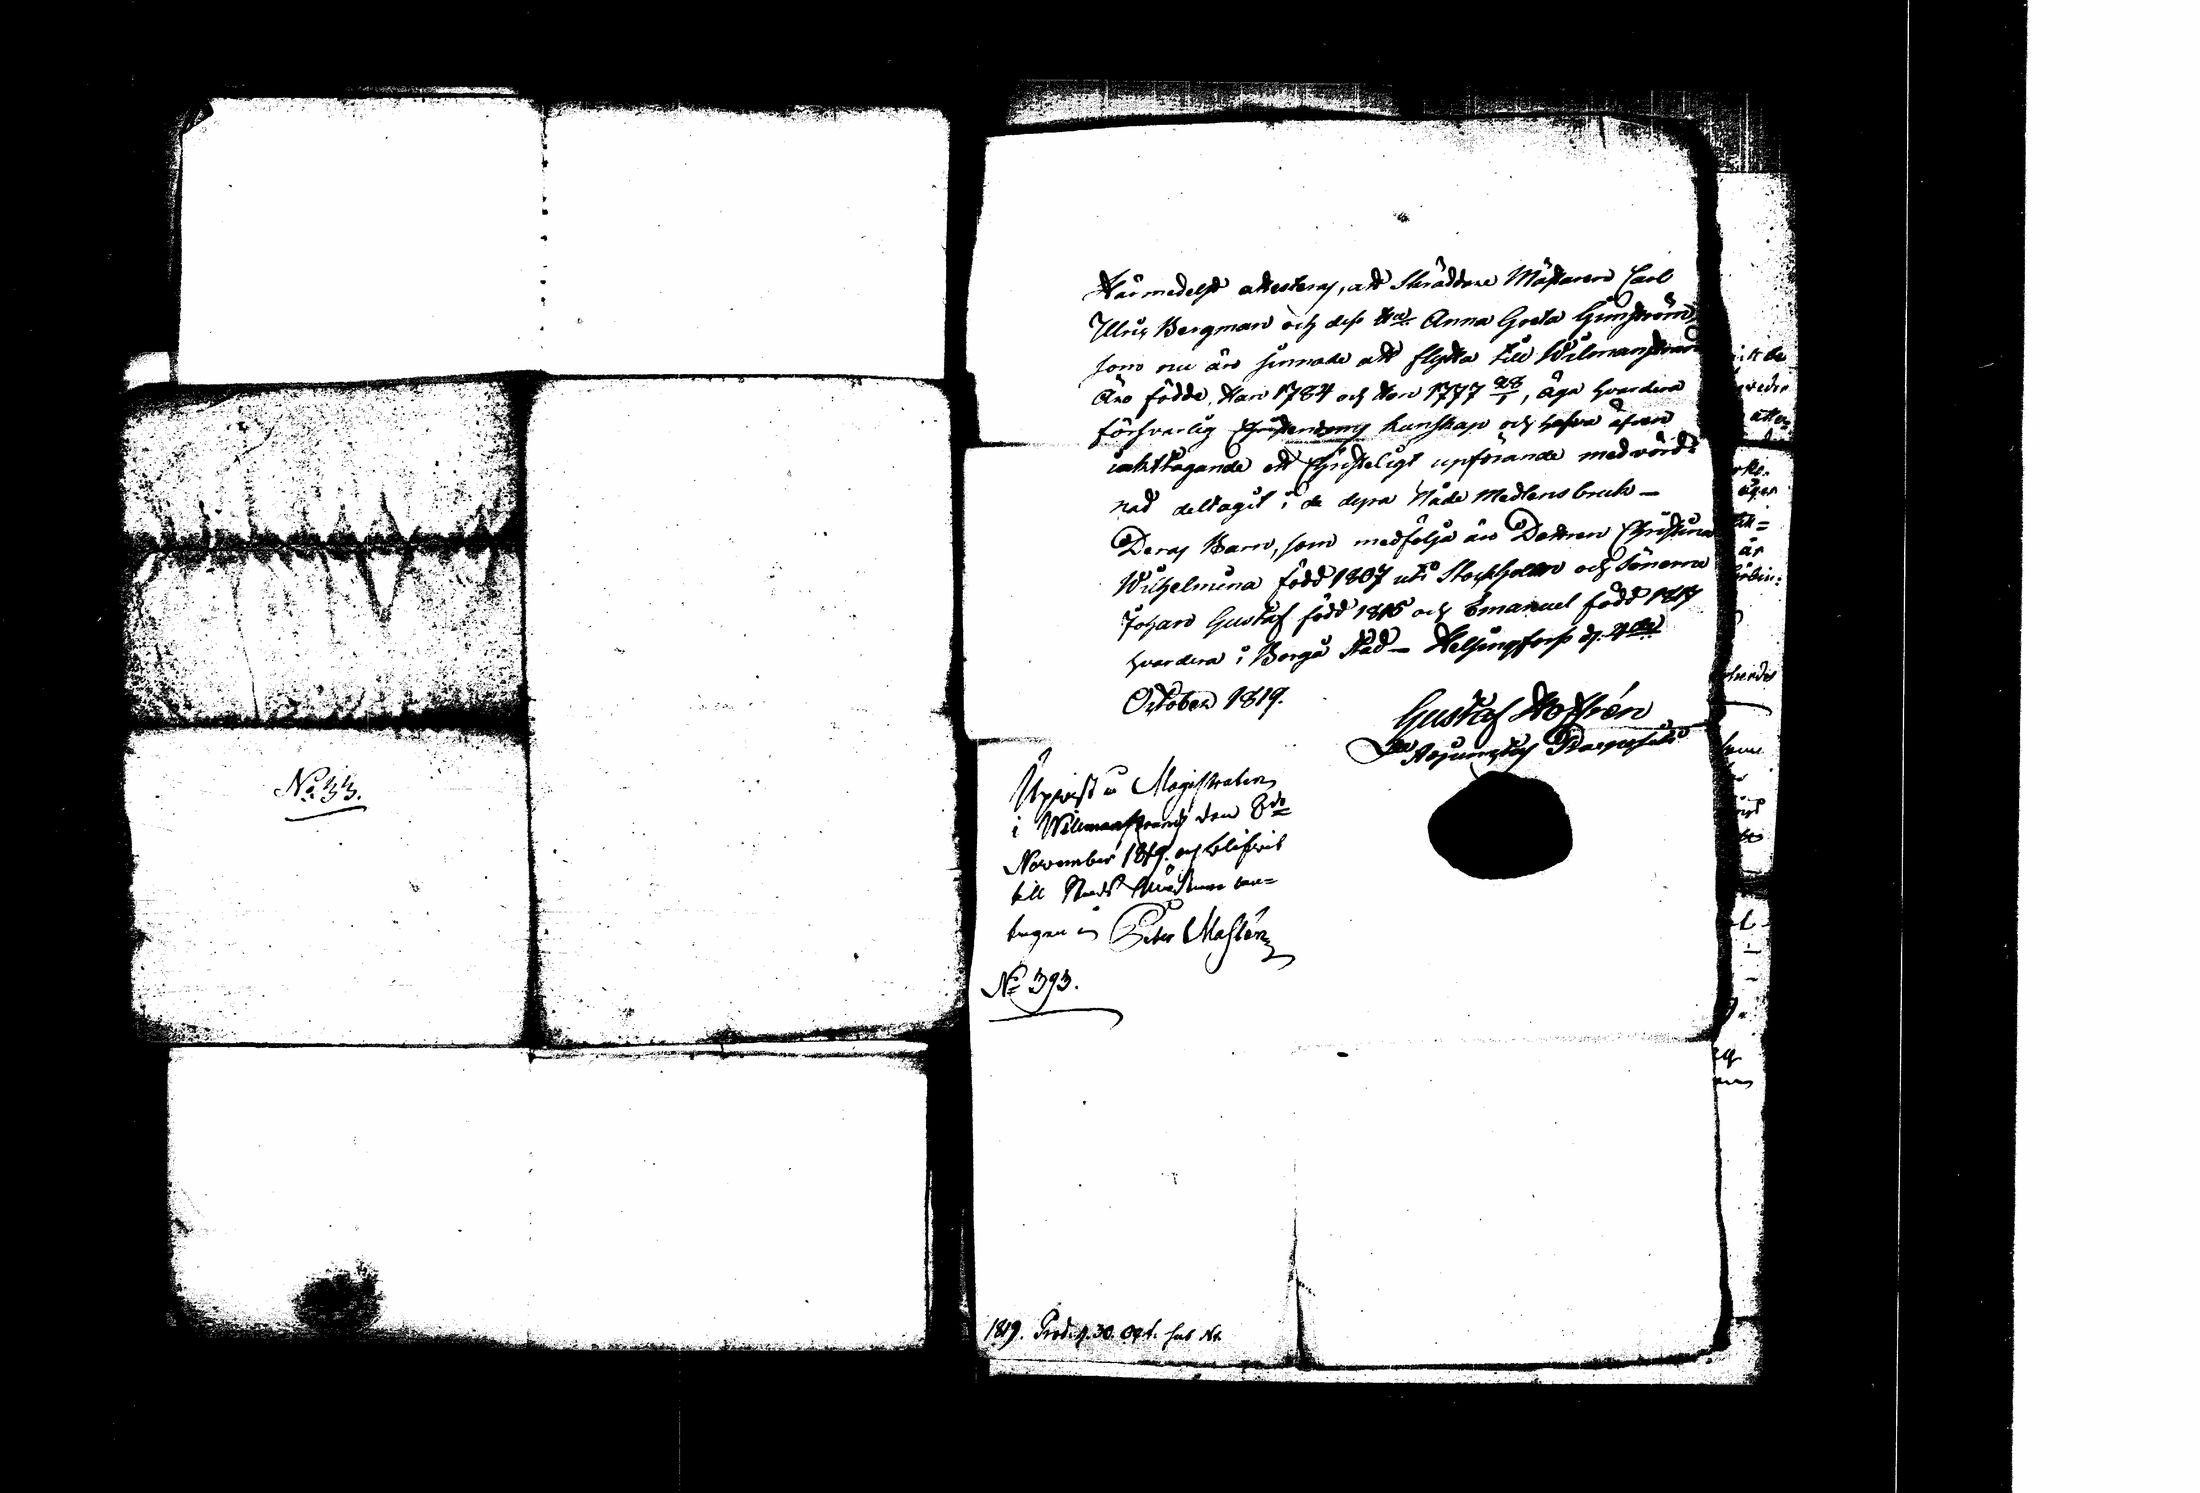 No 33.
Härmedelst attesteras, att Skräddare Mästaren Carl
Ulric Bergman och dess Hu Anna Greta
som nu äro sinnade att flytta till Wilmanstrand
Äro födde, Han 1784 och Hon 1777 28/1, äga hvardera
försvarlig Christendoms kunskap och hafva äfven
iakttagande ett Christeligt upförande med vörd-
nad deltagit i de dyra Nåde Medlens bruk –
Deras Barn, som medfölja äro Dottren Christina
Wilhelmina född 1807 uti Stockholm och Sönerna
Johan Gustaf född 1815 och Emanuel född 1817
hvardera i Borgå Stad – Helsingfors d. 4de
October 1819.
Gustaf
Upvist å Magistraten
i Wilmanstrand den 8de
November 1819. och blifvit
till Stads Skräddare an-
tagen Peter
No 393.
1819. Prod. d. 30. Oct. sub No.